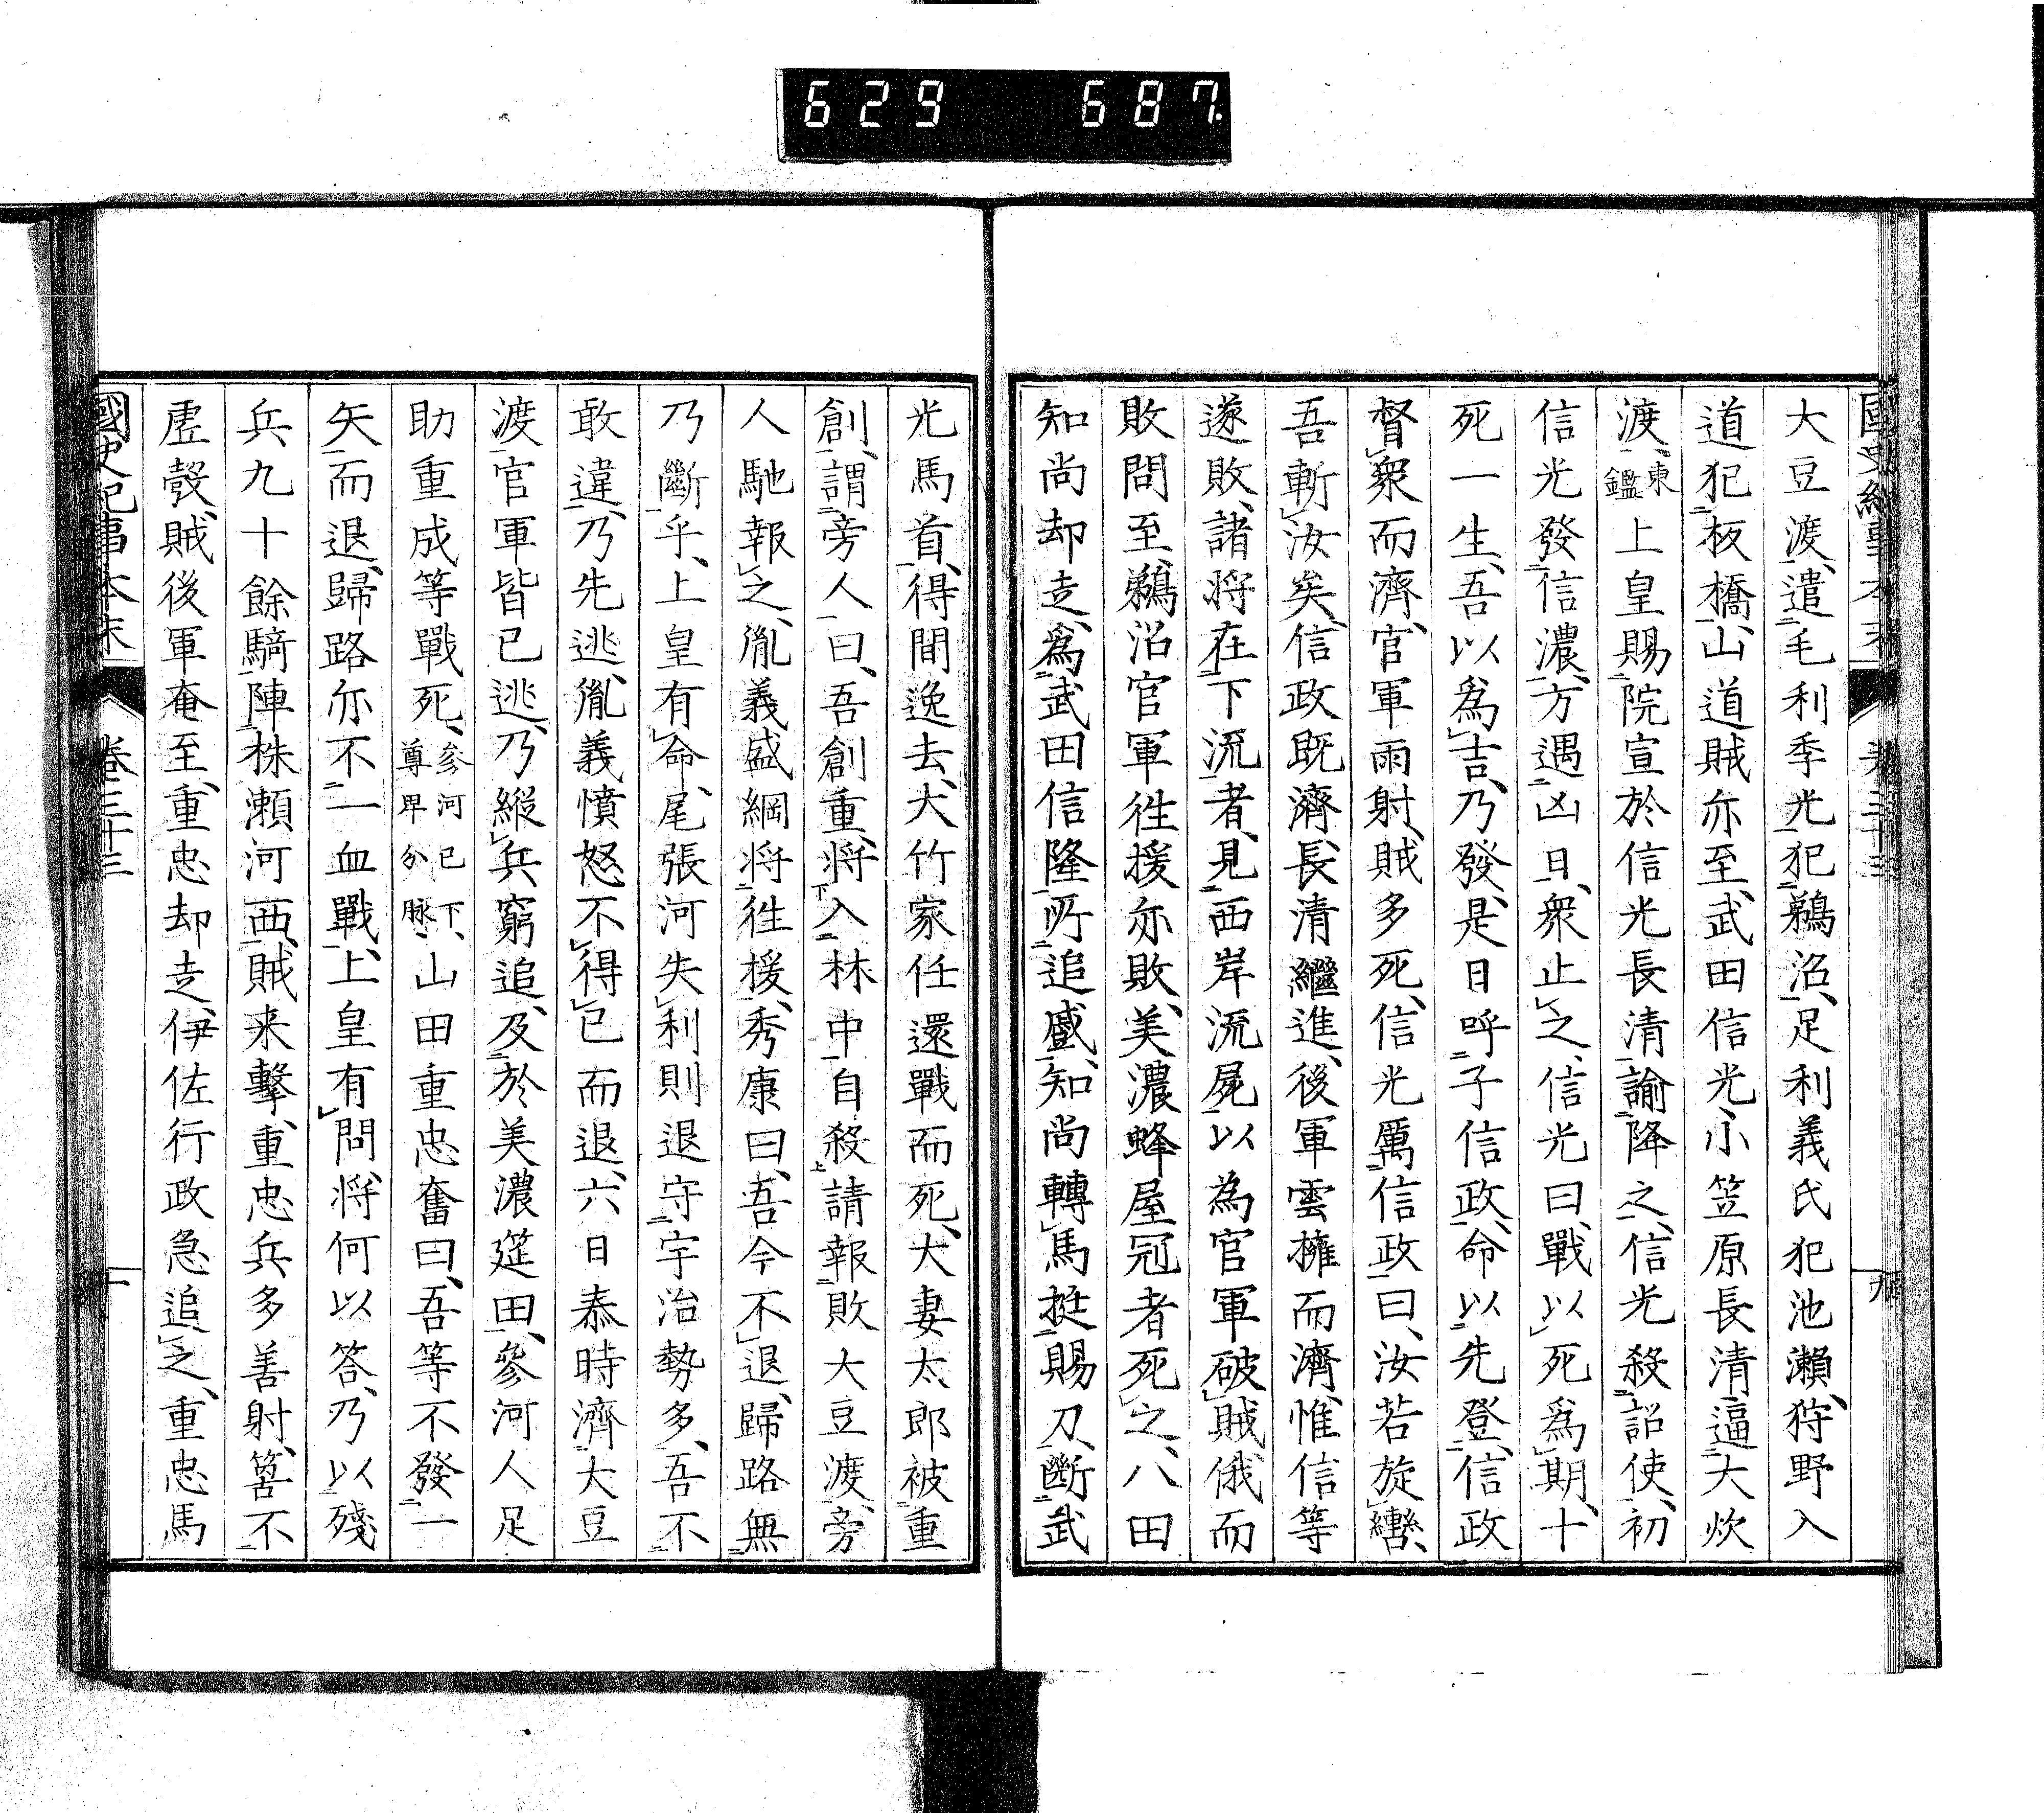 629 687
國史紀事本末 卷三十三 九
大豆渡、遣毛利季光犯鵜沼、足利義氏犯池瀨、狩野入
道犯板橋、山道賊亦至、武田信光、小笠原長清逼大炊
渡、東鑑上皇賜院宣於信光長清諭降之、信光殺詔使、初
信光發信濃、方遇凶日、衆止之、信光曰、戰以死爲期、十
死一生、吾以爲吉、乃發、是日呼子信政、命以先登、信政
督衆而濟、官軍雨射、賊多死、信光厲信政曰、汝若旋轡、
吾斬汝矣、信政既濟、長清繼進、後軍雲擁而濟、惟信等
遂敗、諸將在下流者、見西岸流屍以為官軍破賊、俄而
敗問至、鵜沼官軍徃援亦敗、美濃蜂屋冠者死之、八田
知尚却走、爲武田信隆所追蹙、知尚轉馬挺賜刀斷武
光馬首、得間逸去、大竹家任還戰而死、犬妻太郎被重
創、謂旁人曰、吾創重、将入林中自殺請報敗大豆渡、旁
人馳報之、胤義盛綱将徃援、秀康曰、吾今不退、歸路無
乃斷乎、上皇有命、尾張河失利則退守宇治勢多、吾不
敢違、乃先逃、胤義憤怒不得已而退、六日泰時濟大豆
渡、官軍皆已逃、乃縱兵窮追、及於美濃筵田、參河人足
助重成等戰死、參河已下、尊卑分脉、山田重忠奮曰、吾等不發一
矢而退、歸路亦不一血戰、上皇有問、將何以答、乃以殘
兵九十餘騎陣株瀨河西、賊来擊、重忠兵多善射、筈不
虛彀、賊後軍奄至、重忠却走、伊佐行政急追之、重忠馬
國史紀事本末 卷三十三 十